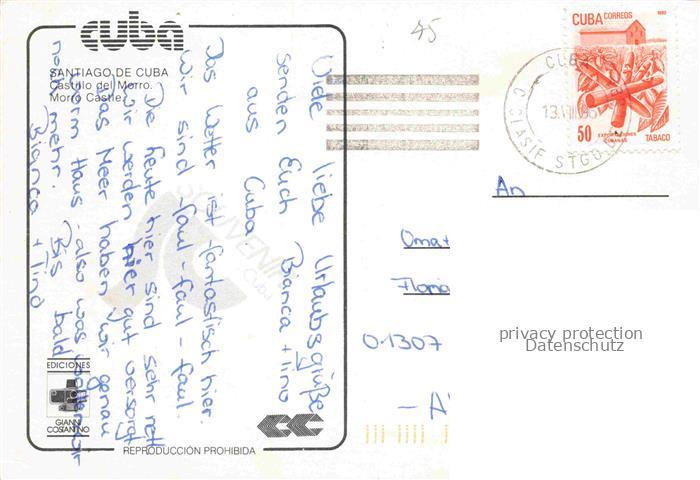 cuba
SANTIAGO DE CUBA
Castillo del Morro.
Morro Castle.
Viele liebe Urlaubsgrüße
senden Euch Bianca + Tino
aus Cuba
Das Wetter ist fantastisch hier.
Wir sind faul - faul - faul.
Die heute hier sind sehr nett
wir werden hier gut versorgt
das Meer haben wir genau
vorm Haus - also was wollen wir
noch mehr. Bis bald
Bianca + Tino
SOUVENIR
Cuba
EDICIONES
GIANNI
COSTANTINO
REPRODUCCIÓN PROHIBIDA
45
CUBA CORREOS
1982
50
EXPORTACIONES
CUBANAS
TABACO
CUBA
13.VIII.96
CLASIF STGO
An
Oma +
Floria
01307
- A
privacy protection
Datenschutz